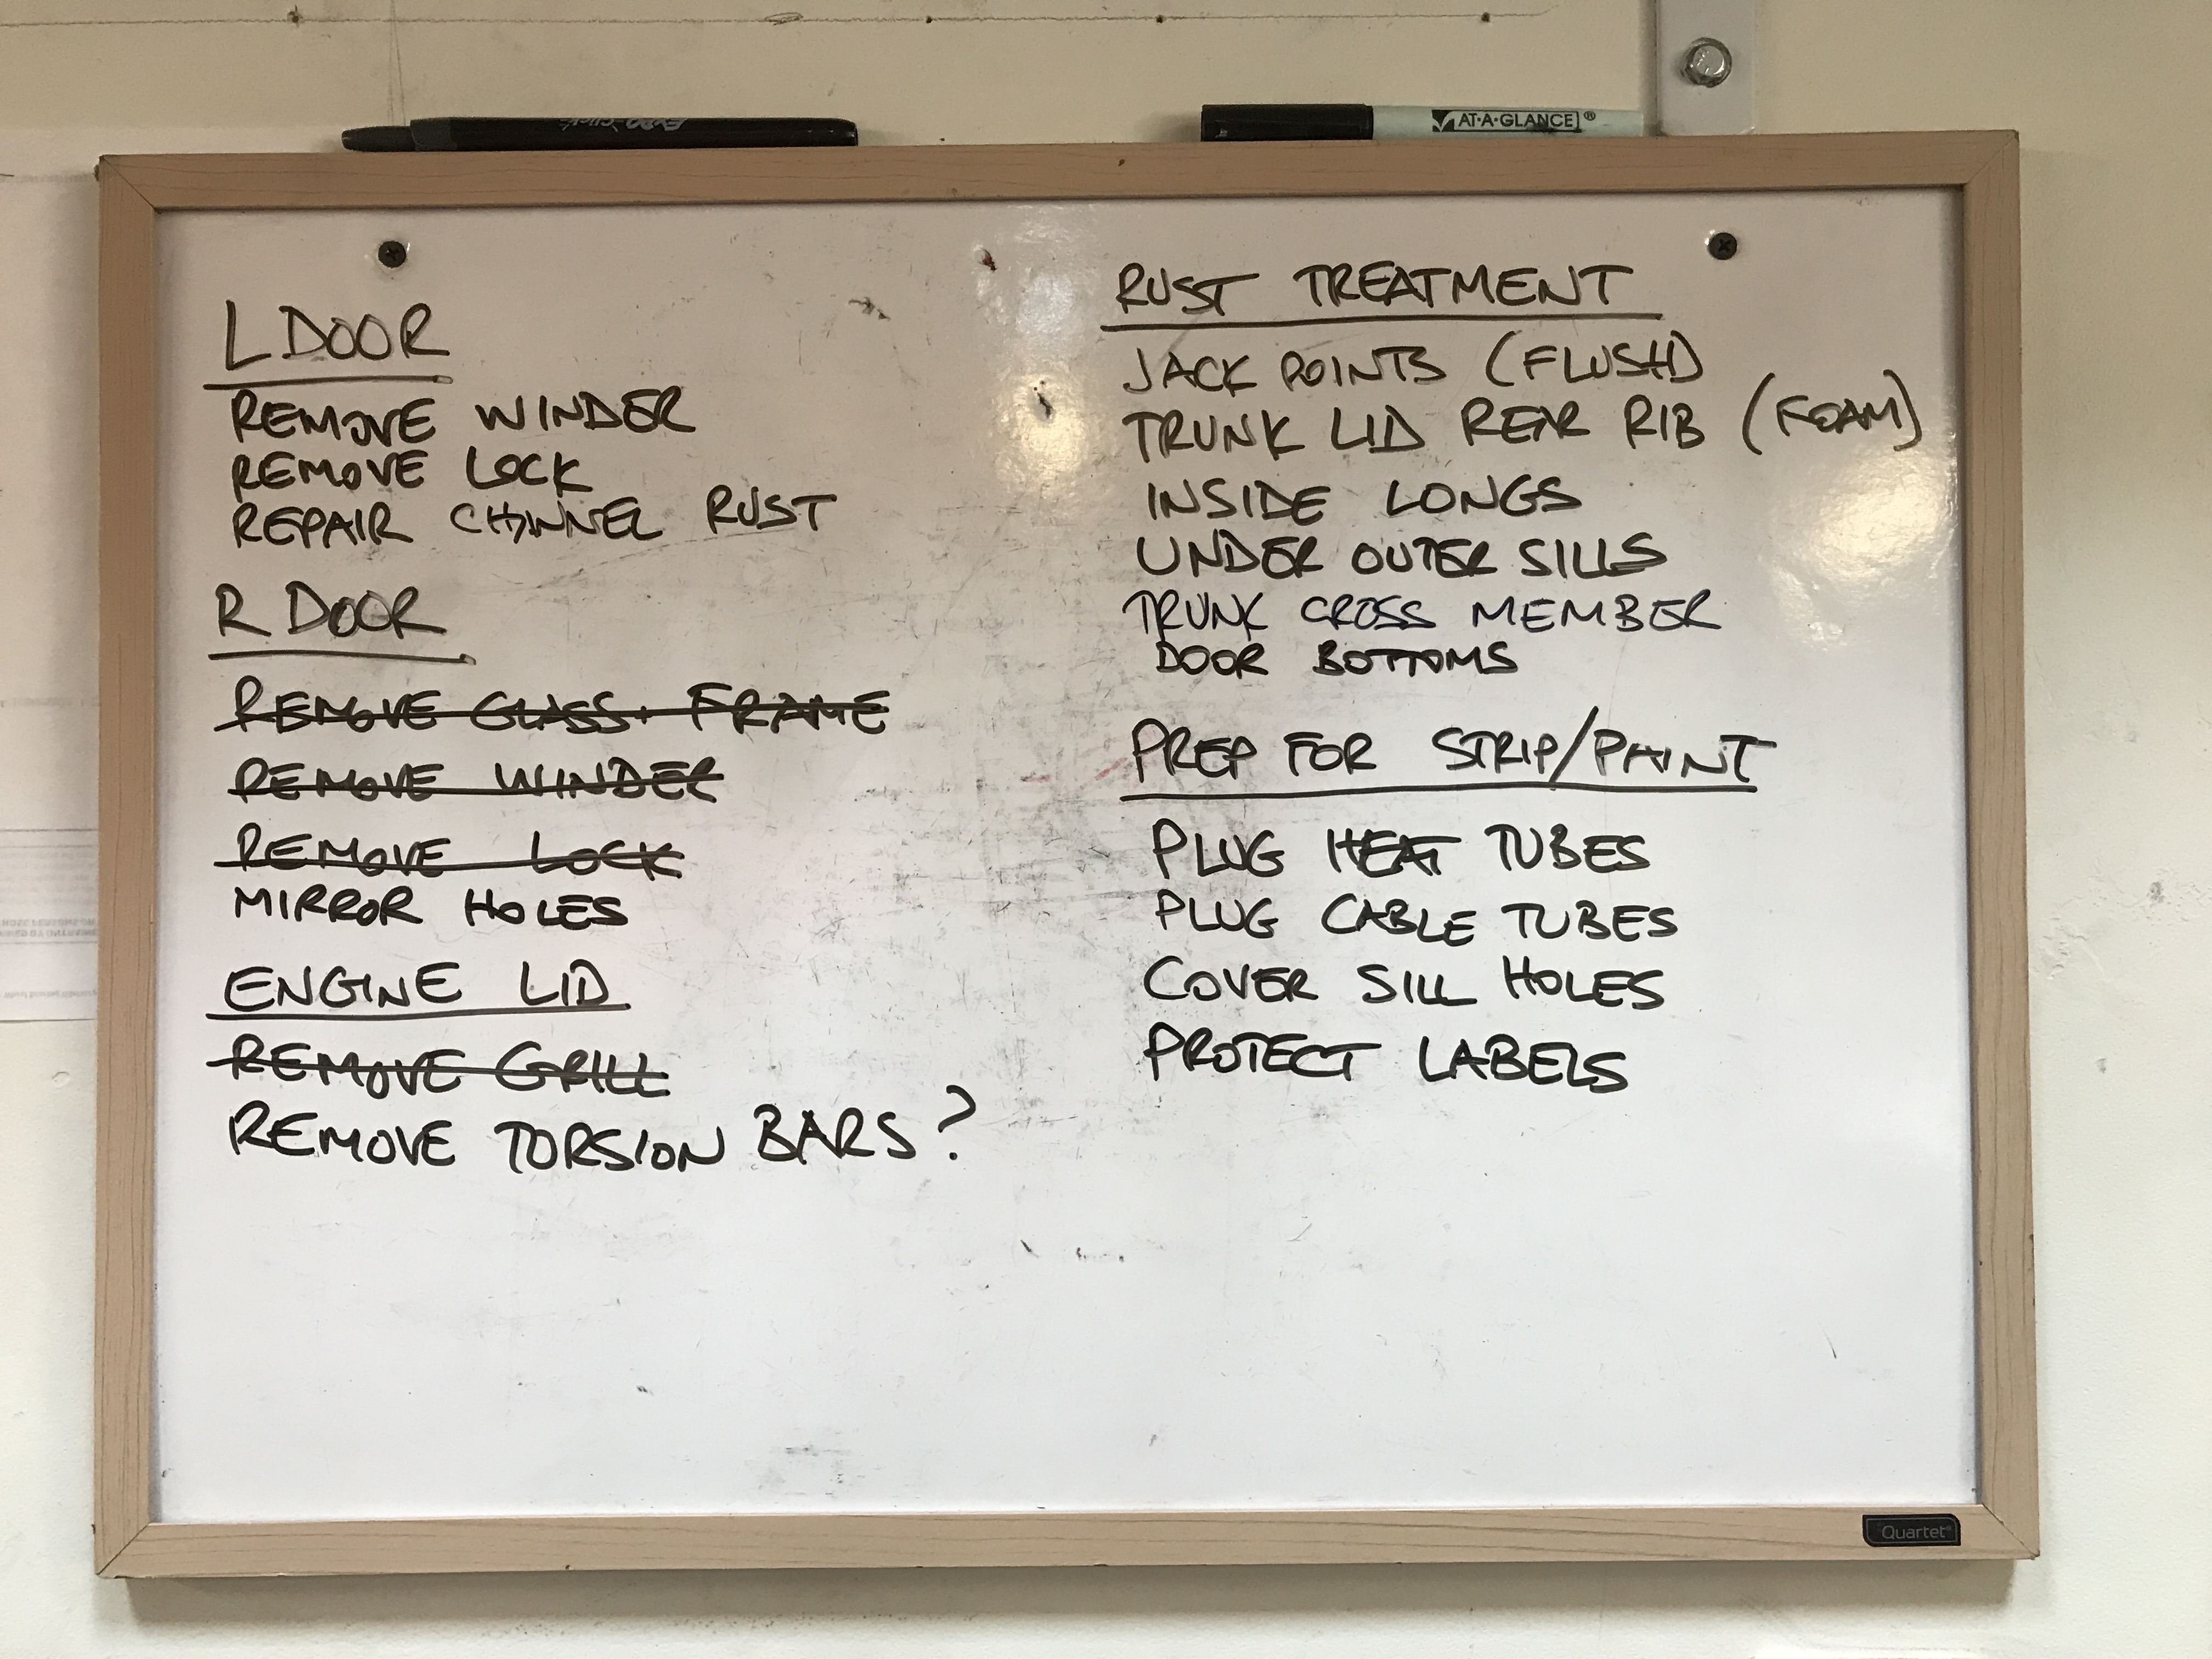 EXPO CLICK
AT-A-GLANCE®
L DOOR
REMOVE WINDER
REMOVE LOCK
REPAIR CHANNEL RUST
R DOOR
REMOVE GLASS + FRAME
REMOVE WINDER
REMOVE LOCK
MIRROR HOLES
ENGINE LID
REMOVE GRILL
REMOVE TORSION BARS?
RUST TREATMENT
JACK POINTS (FLUSH)
TRUNK LID REAR RIB (FOAM)
INSIDE LONGS
UNDER OUTER SILLS
TRUNK CROSS MEMBER
DOOR BOTTOMS
PREP FOR STRIP/PAINT
PLUG HEAT TUBES
PLUG CABLE TUBES
COVER SILL HOLES
PROTECT LABELS
Quartet®